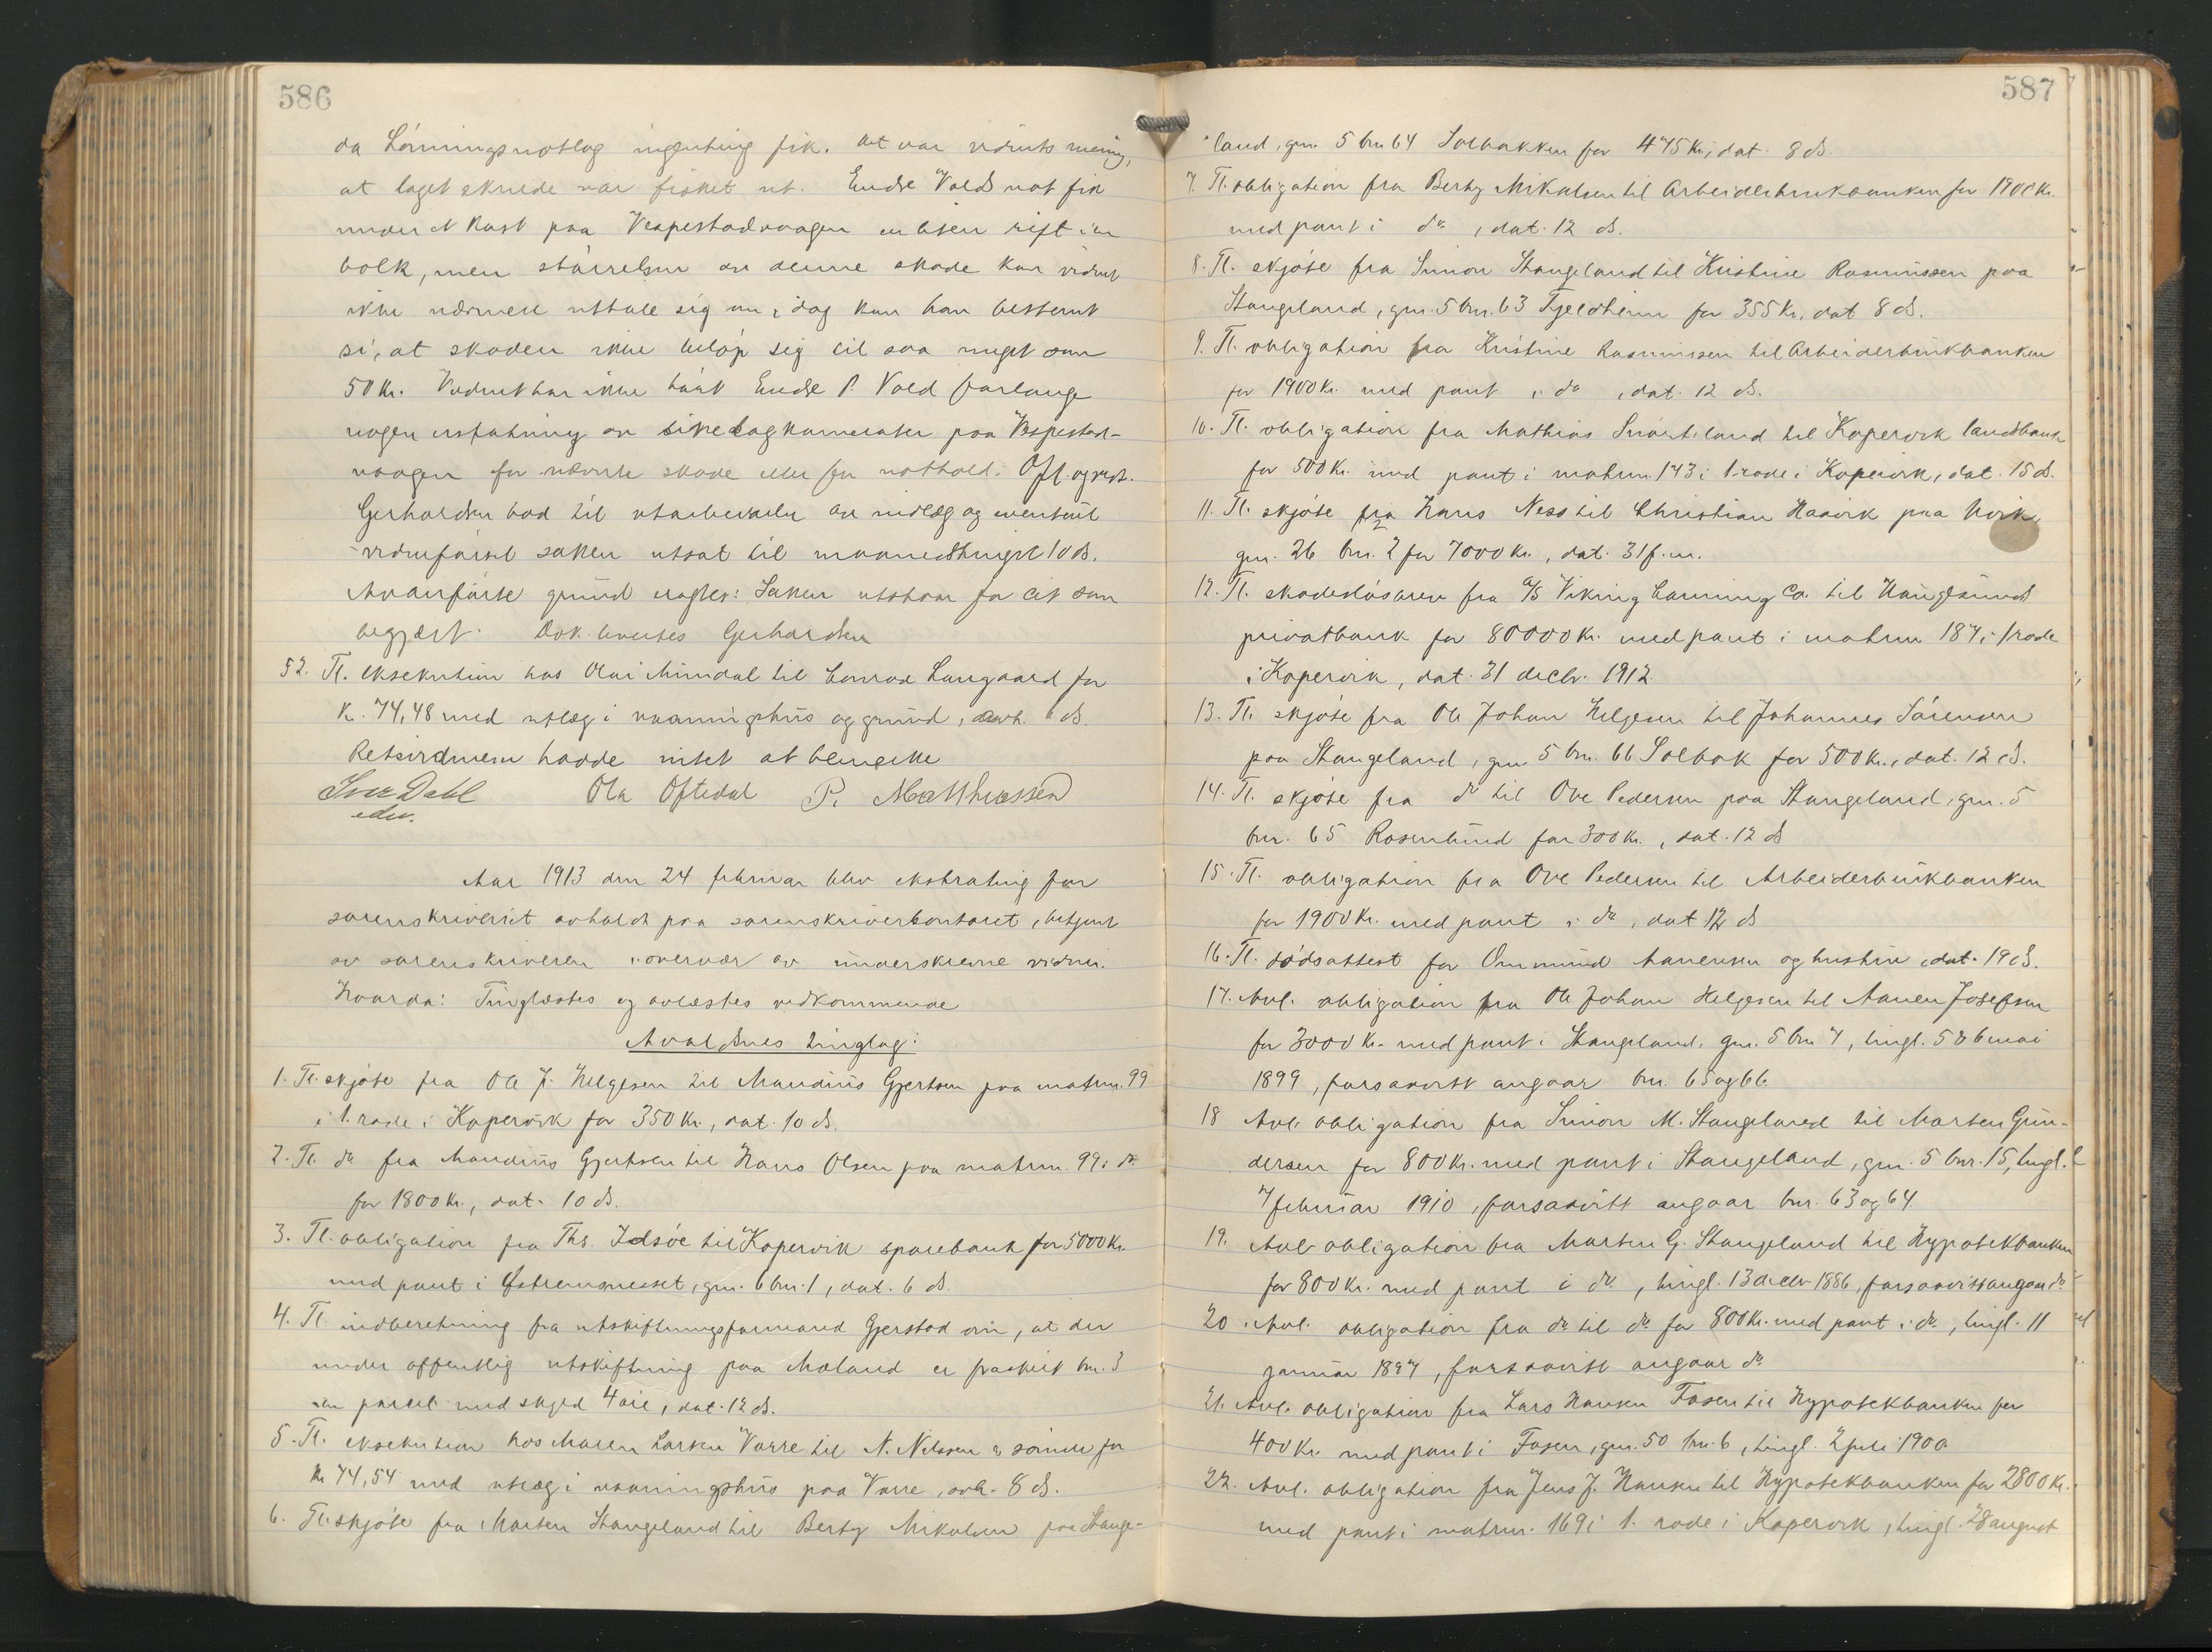 586
da Lönningsnotlag ingenting fik. Det var vidnets mening,
at laget skulde var fisket ut. Endre Volds not fik
under et kast paa Vespestadvaagen en liten rift i en
bolk, men størrelsen av denne skade kan vidnet
ikke nærmere uttale sig om, idag kan han bestemt
si, at skaden ikke beløp sig til saa meget som
50 Kr. Vidnet har ikke hørt Endre P. Vold forlange
nogen erstatning av sine lagkamerater paa Vespestad-
vaagen for nævnte skade eller for nothold. Opl. og vedt.
Gerhardsen bad til utarbeidelse av indlæg og eventuel
vidneførsel saken utsat til maanedstinget 10 ds.
Avanførte grund eragtes: Saken utstaar for at som
begjært. Dok. leveres Gerhardsen
52. Tl. eksekution hos Olai Mindal til Conrad Langaard for
Kr. 74,48 med utlæg i vaaningshus og grund, avh. ds.
Retsvidnene hadde intet at bemerke
Iver Dahl Ola Oftedal P. Matthiassen
edsv.
Aar 1913 den 24 februar blev ekstrating for
sorenskriveriet avholdt paa sorenskriverkontoret, betjent
av sorenskriveren i overvær av underskrevne vidner.
Hvorda: Tinglæstes og avlæstes vedkommende
Avaldsnes tinglag:
1. Tl. skjøte fra Ole J. Helgesen til Maudius Gjertsen paa matrnr. 99
i 1. rode i Kopervik for 350 Kr., dat. 10 ds.
2. Tl. do fra Maudius Gjertsen til Hans Olsen paa matrnr. 99 i do
for 1800 Kr., dat. 10 ds.
3. Tl. obligation fra Ths. Idsöe til Kopervik sparebank for 5000 Kr.
med pant i Østremneset, gnr. 6 bnr. 1, dat. 6 ds.
4. Tl. indberetning fra utskiftningsformand Gjerstad om, at der
under offentlig utskiftning paa Mæland er fraskilt bnr. 3
en parcel med skyld 4 øre, dat. 12 ds.
5. Tl. eksekution hos Maren Larsen Vorre til N. Nilssen & sønner for
Kr. 74,54 med utlæg i vaaningshus paa Vorre, avh. 8 ds.
6. Tl. skjøte fra Morten Stangeland til Berty Mikalsen paa Stange-
587
land, gnr. 5 bnr. 64 Solbakken for 475 Kr., dat. 8 ds.
7. Tl. obligation fra Berty Mikalsen til Arbeiderbrukbanken for 1900 Kr.
med pant i do, dat. 12 ds.
8. Tl. skjøte fra Simon Stangeland til Kristine Rasmussen paa
Stangeland, gnr. 5 bnr. 63 Fjeldheim for 355 Kr., dat 8 ds.
9. Tl. obligation fra Kristine Rasmussen til Arbeiderbrukbanken
for 1900 Kr. med pant i do, dat. 12 ds.
10. Tl. obligation fra Mathias Svartiland til Kopervik landsbank
for 500 Kr. med pant i matrnr. 143 i 1. rode i Kopervik, dat. 15 ds.
11. Tl. skjøte fra Hans Ness til Christian Haavik paa Hvik,
gnr. 26 bnr. 2 for 7000 Kr., dat. 31 f.m.
12. Tl. skadesløsbrev fra A/S Viking Canning Co. til Haugesunds
privatbank for 80000 Kr. med pant i matrnr 187 i 1 rode
i Kopervik, dat. 31 decbr. 1912.
13. Tl. skjøte fra Ole Johan Helgesen til Johannes Sørensen
paa Stangeland, gnr. 5 bnr. 66 Solbak for 500 Kr., dat. 12 ds.
14. Tl. skjøte fra do til Ove Pedersen paa Stangeland, gnr. 5
bnr. 65 Rosenlund for 300 Kr., dat. 12 ds
15. Tl. obligation fra Ove Pedersen til Arbeiderbrukbanken
for 1900 Kr. med pant i do, dat 12 ds
16. Tl. dødsattest for Ommund Aanensen og hustru, dat. 19 ds.
17. Avl. obligation fra Ole Johan Helgesen til Aanen Josefsen
for 3000 Kr. med pant i Stangeland, gnr. 5 bnr 7, tingl. 5 & 6 mai
1899, forsaavitt angaar bnr. 65 og 66
18 Avl. obligation fra Simon M. Stangeland til Morten Gun-
dersen for 800 Kr. med pant i Stangeland, gnr. 5 bnr. 15, tingl.
7 februar 1910, forsaavitt angaar bnr. 63 og 64.
19. Avl. obligation fra Morten G. Stangeland til Hypotekbanken
for 800 Kr. med pant i do, tingl. 13 decbr 1886, forsaavitt angaar do
20. Avl. obligation fra do til do for 800 Kr. med pant i do, tingl. 11
januar 1897, forsaavitt angaar do
21. Avl. obligation fra Lars Hansen Fosen til Hypotekbanken for
400 Kr. med pant i Fosen, gnr. 50 bnr. 6, tingl. 2 juli 1900.
22. Avl. obligation fra Jens J. Hansen til Hypotekbanken for 2800 Kr.
med pant i matrnr. 169 i 1. rode i Kopervik, tingl. 28 august